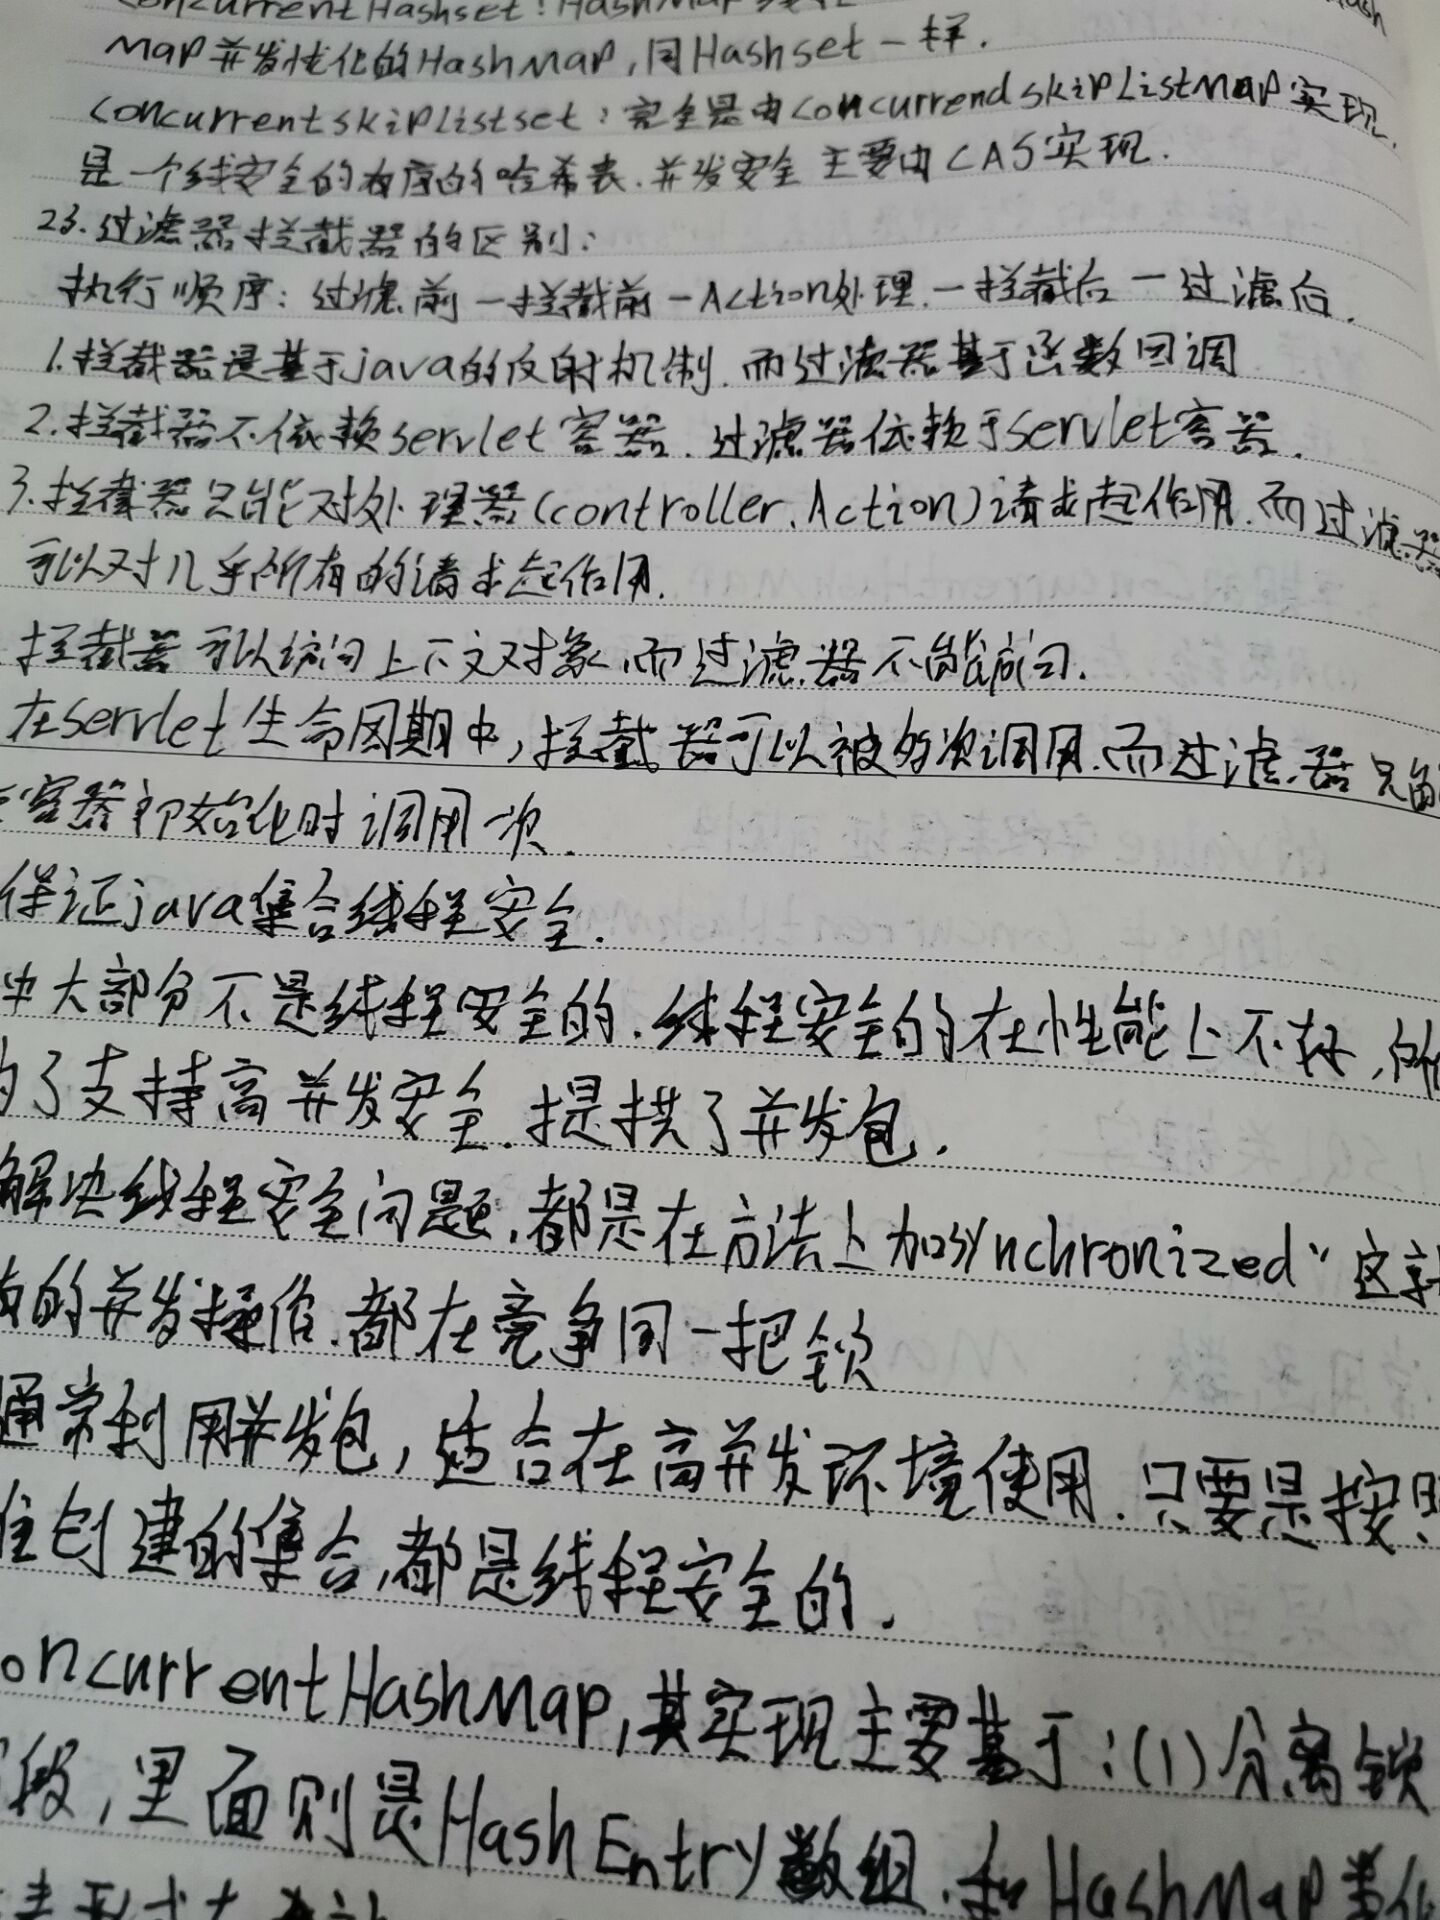 ConcurrentHashset:HashMap
MaP并发优化的HashMaP,同Hashset一样.
ConcurrentskiPListset:完全是由ConcurrendskiPListMaP实现,
是一个线安全的有序的哈希表.并发安全主要由CAS实现.
23.过滤器拦截器的区别:
执行顺序:过滤前-拦截前-Action处理.-拦截后-过滤后.
1.拦截器是基于java的反射机制.而过滤器基于函数回调
2.拦截器不依赖servlet容器.过滤器依赖于servlet容器.
3.拦截器只能对处理器(controller.Action)请求起作用.而过滤器
可以对几乎所有的请求起作用.
拦截器可以访问上下文对象,而过滤器不能访问.
在servlet生命周期中,拦截器可以被多次调用.而过滤器只能
容器初始化时调用一次.
保证java集合线程安全.
中大部分不是线程安全的.线程安全的在性能上不好,所
了支持高并发安全.提拱了并发包.
解决线程安全问题,都是在方法上加synchronized"这就
的并发操作.都在竞争同一把锁
通常利用并发包,适合在高并发环境使用.只要是按照
创建的集合,都是线程安全的.
oncurrentHashMap,其实现主要基于:(1)分离锁
段,里面则是HashEntry数组.和HashMap类似